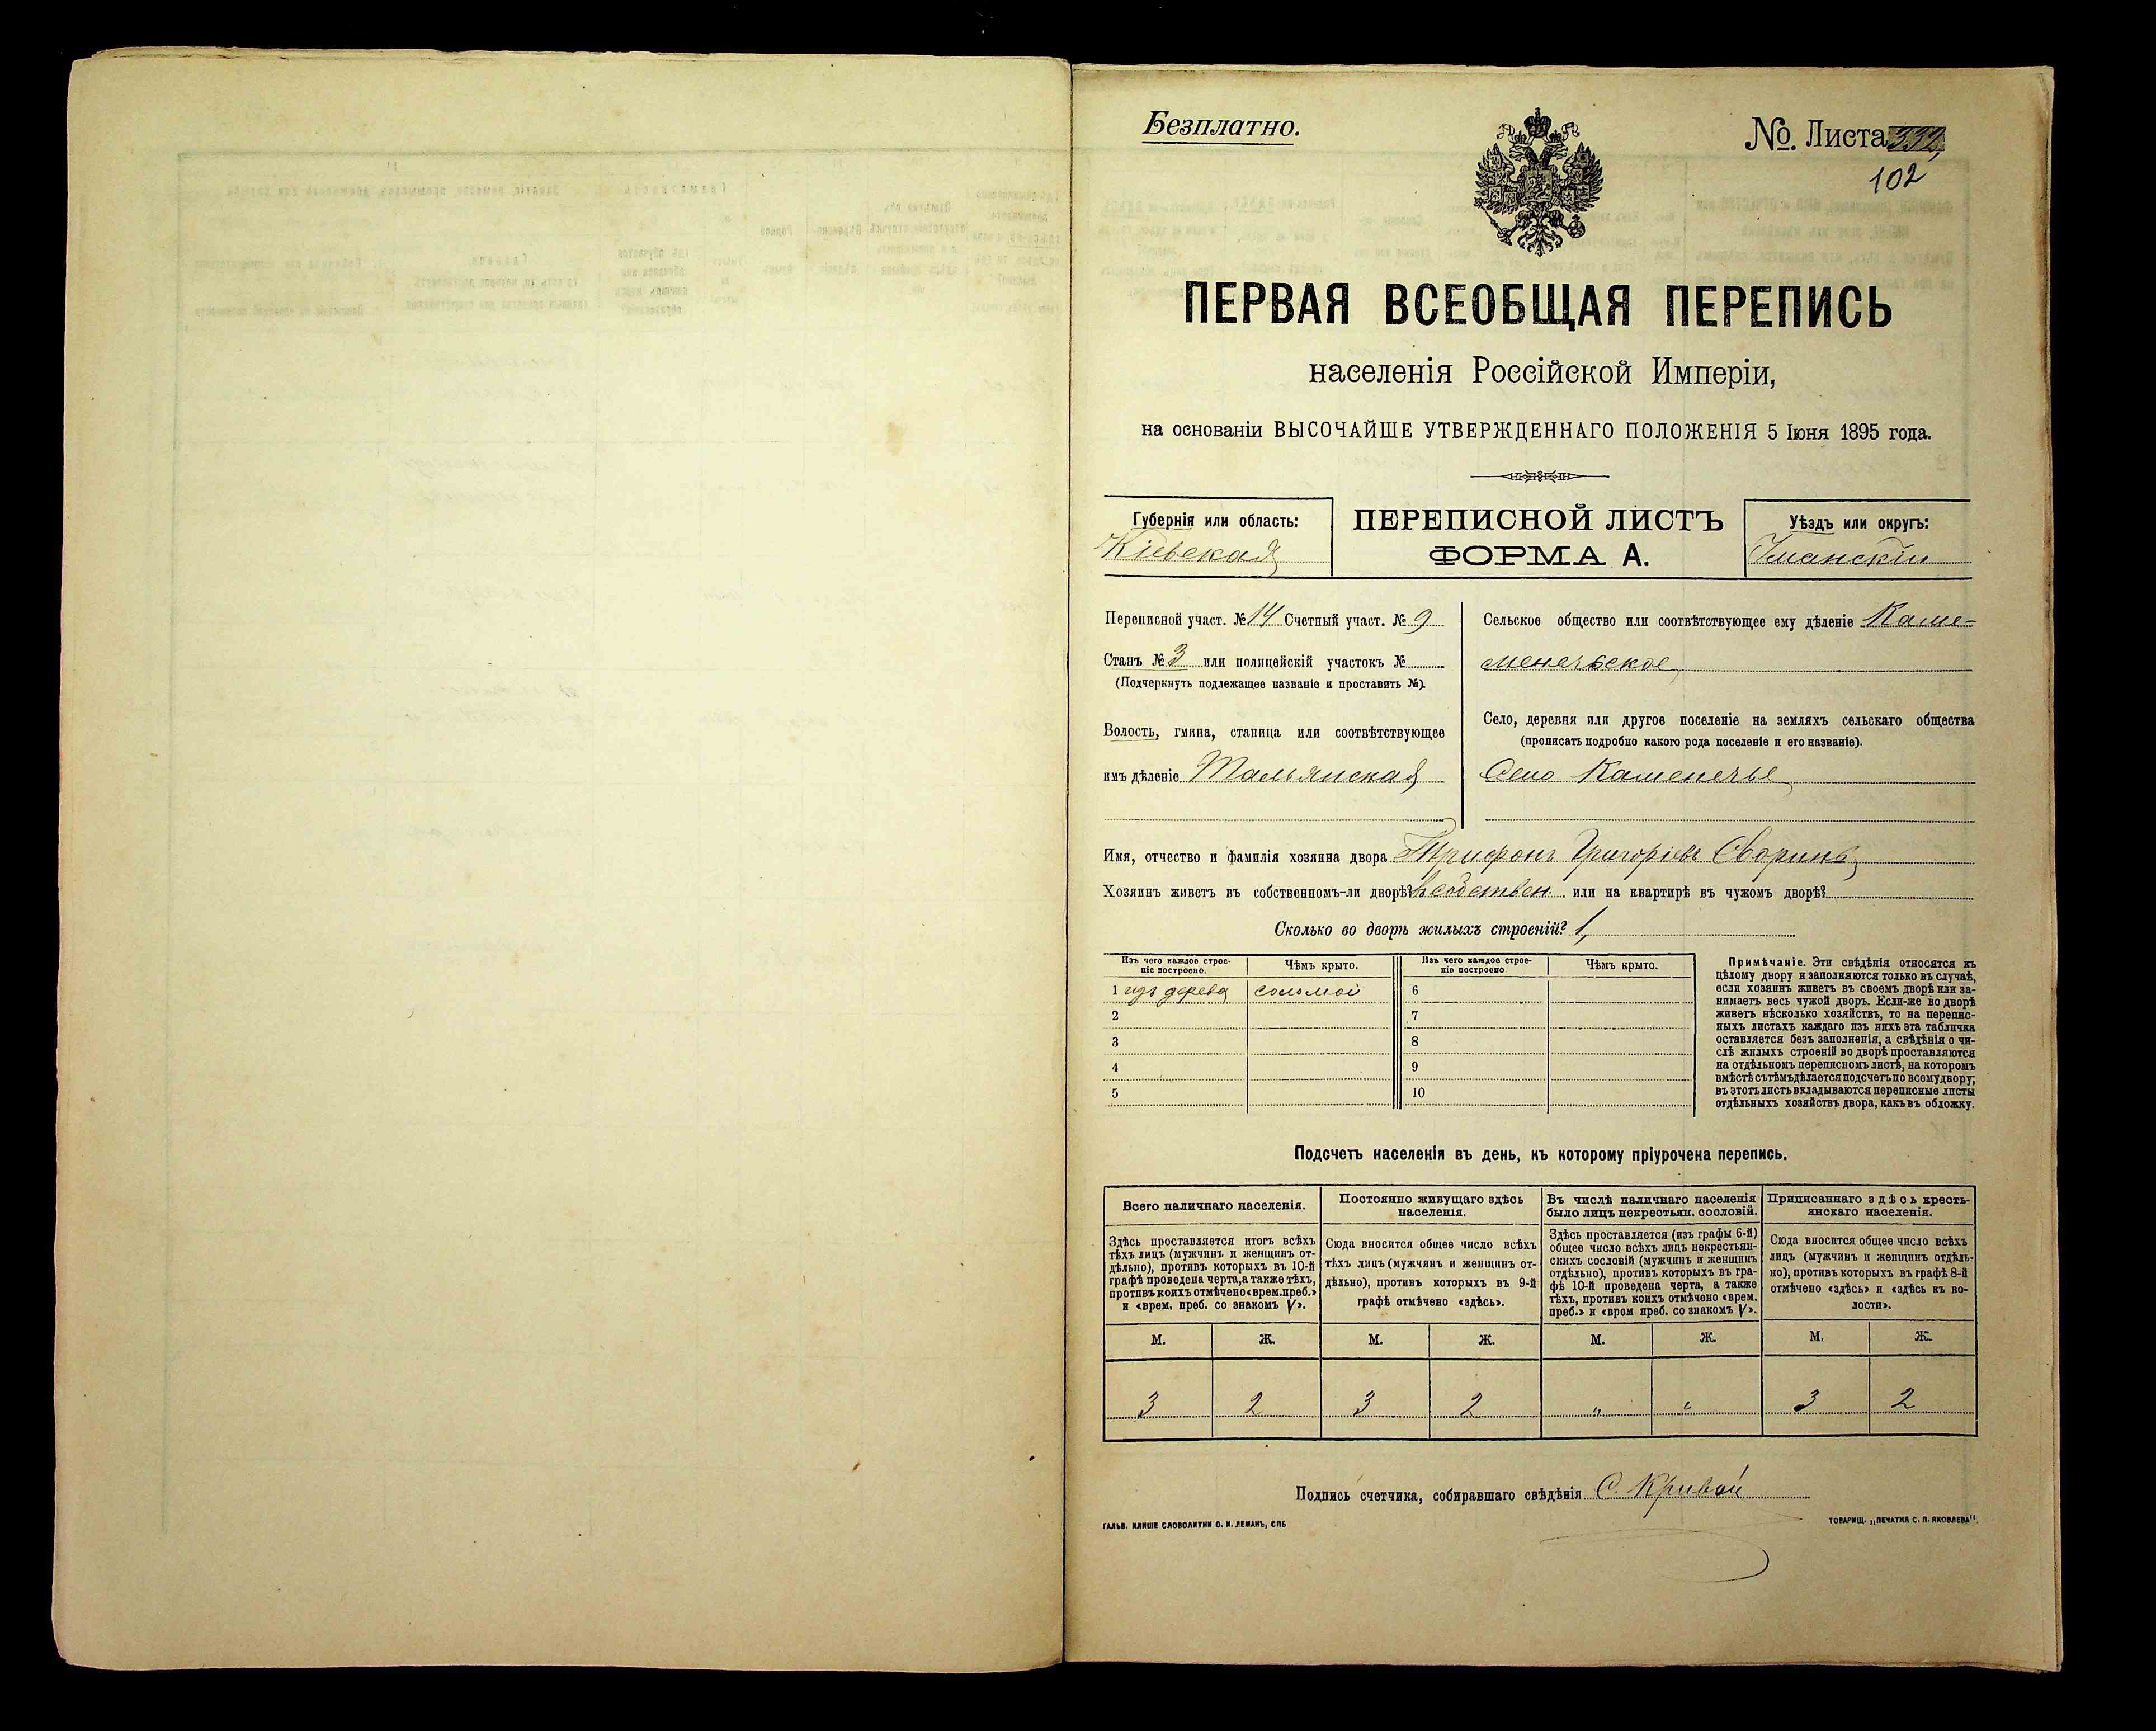 Безплатно.
№. Листа 332,
102
ПЕРВАЯ ВСЕОБЩАЯ ПЕРЕПИСЬ
населенія Россійской Имперіи,
на основаніи ВЫСОЧАЙШЕ УТВЕРЖДЕННАГО ПОЛОЖЕНІЯ 5 Іюня 1895 года.
Губернія или область:
Кіевская
ПЕРЕПИСНОЙ ЛИСТЪ
ФОРМА А.
Уѣздъ или округъ:
Уманскій
Переписной участ. № 14 Счетный участ. № 9
Станъ № 3 или полицейскій участокъ №
(Подчеркнуть подлежащее названіе и проставить №).
Волость, гмина, станица или соотвѣтствующее
имъ дѣленіе Тальянская
Сельское общество или соотвѣтствующее ему дѣленіе Каме-
менечьское
Село, деревня или другое поселеніе на земляхъ сельскаго общества
(прописать подробно какого рода поселеніе и его названіе).
Село Каменечье
Имя, отчество и фамилія хозяина двора Трифонъ Григорьевъ Своринъ
Хозяинъ живетъ въ собственномъ-ли дворѣ? въ собствен или на квартирѣ въ чужомъ дворѣ?
Сколько во дворѣ жилыхъ строеній? 1,
Изъ чего каждое строе-
ніе построено.
Чѣмъ крыто.
Изъ чего каждое строе-
ніе построено.
Чѣмъ крыто.
1 изъ дерева соломой 6
2 7
3 8
4 9
5 10
Примѣчаніе. Эти свѣдѣнія относятся къ
цѣлому двору и заполняются только въ случаѣ,
если хозяинъ живетъ въ своемъ дворѣ или за-
нимаетъ весь чужой дворъ. Если-же во дворѣ
живетъ нѣсколько хозяйствъ, то на перепис-
ныхъ листахъ каждаго изъ нихъ эта табличка
оставляется безъ заполненія, а свѣдѣнія о чи-
слѣ жилыхъ строеній во дворѣ проставляются
на отдѣльномъ переписномъ листѣ, на которомъ
вмѣстѣ съ тѣмъ дѣлается подсчетъ по всему двору;
въ этотъ листъ вкладываются переписные листы
отдѣльныхъ хозяйствъ двора, какъ въ обложку.
Подсчетъ населенія въ день, къ которому пріурочена перепись.
Всего наличнаго населенія.
Здѣсь проставляется итогъ всѣхъ
тѣхъ лицъ (мужчинъ и женщинъ от-
дѣльно), противъ которыхъ въ 10-й
графѣ проведена черта, а также тѣхъ,
противъ коихъ отмѣчено «врем. преб.»
и «врем. преб. со знакомъ V».
Постоянно живущаго здѣсь
населенія.
Сюда вносится общее число всѣхъ
тѣхъ лицъ (мужчинъ и женщинъ от-
дѣльно), противъ которыхъ въ 9-й
графѣ отмѣчено «здѣсь».
Въ числѣ наличнаго населенія
было лицъ некрестьян. сословій.
Здѣсь проставляется (изъ графы 6-й)
общее число всѣхъ лицъ некрестьян-
скихъ сословій (мужчинъ и женщинъ
отдѣльно), противъ которыхъ въ гра-
фѣ 10-й проведена черта, а также
тѣхъ, противъ коихъ отмѣчено «врем.
преб.» и «врем преб. со знакомъ V».
Приписаннаго здѣсь кресть-
янскаго населенія.
Сюда вносится общее число всѣхъ
лицъ (мужчинъ и женщинъ отдѣль-
но), противъ которыхъ въ графѣ 8-й
отмѣчено «здѣсь» и «здѣсь къ во-
лости».
М. Ж. М. Ж. М. Ж. М. Ж.
3 2 3 2 " " 3 2
Подпись счетчика, собиравшаго свѣдѣнія С. Кривой
ГАЛЬВ. КЛИШЕ СЛОВОЛИТНИ О. И. ЛЕМАНЪ, СПБ
ТОВАРИЩ. „ПЕЧАТНЯ С. П. ЯКОВЛЕВА".